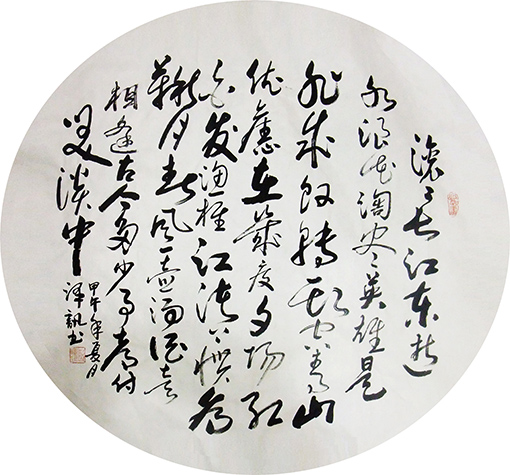 滚滚长江东逝
水浪花淘尽英雄是
非成败转头空青山
依旧在几度夕阳红
白发渔樵江渚上惯看
秋月春风一壶浊酒喜
相逢古今多少事都付
笑谈中
甲午年夏月
书